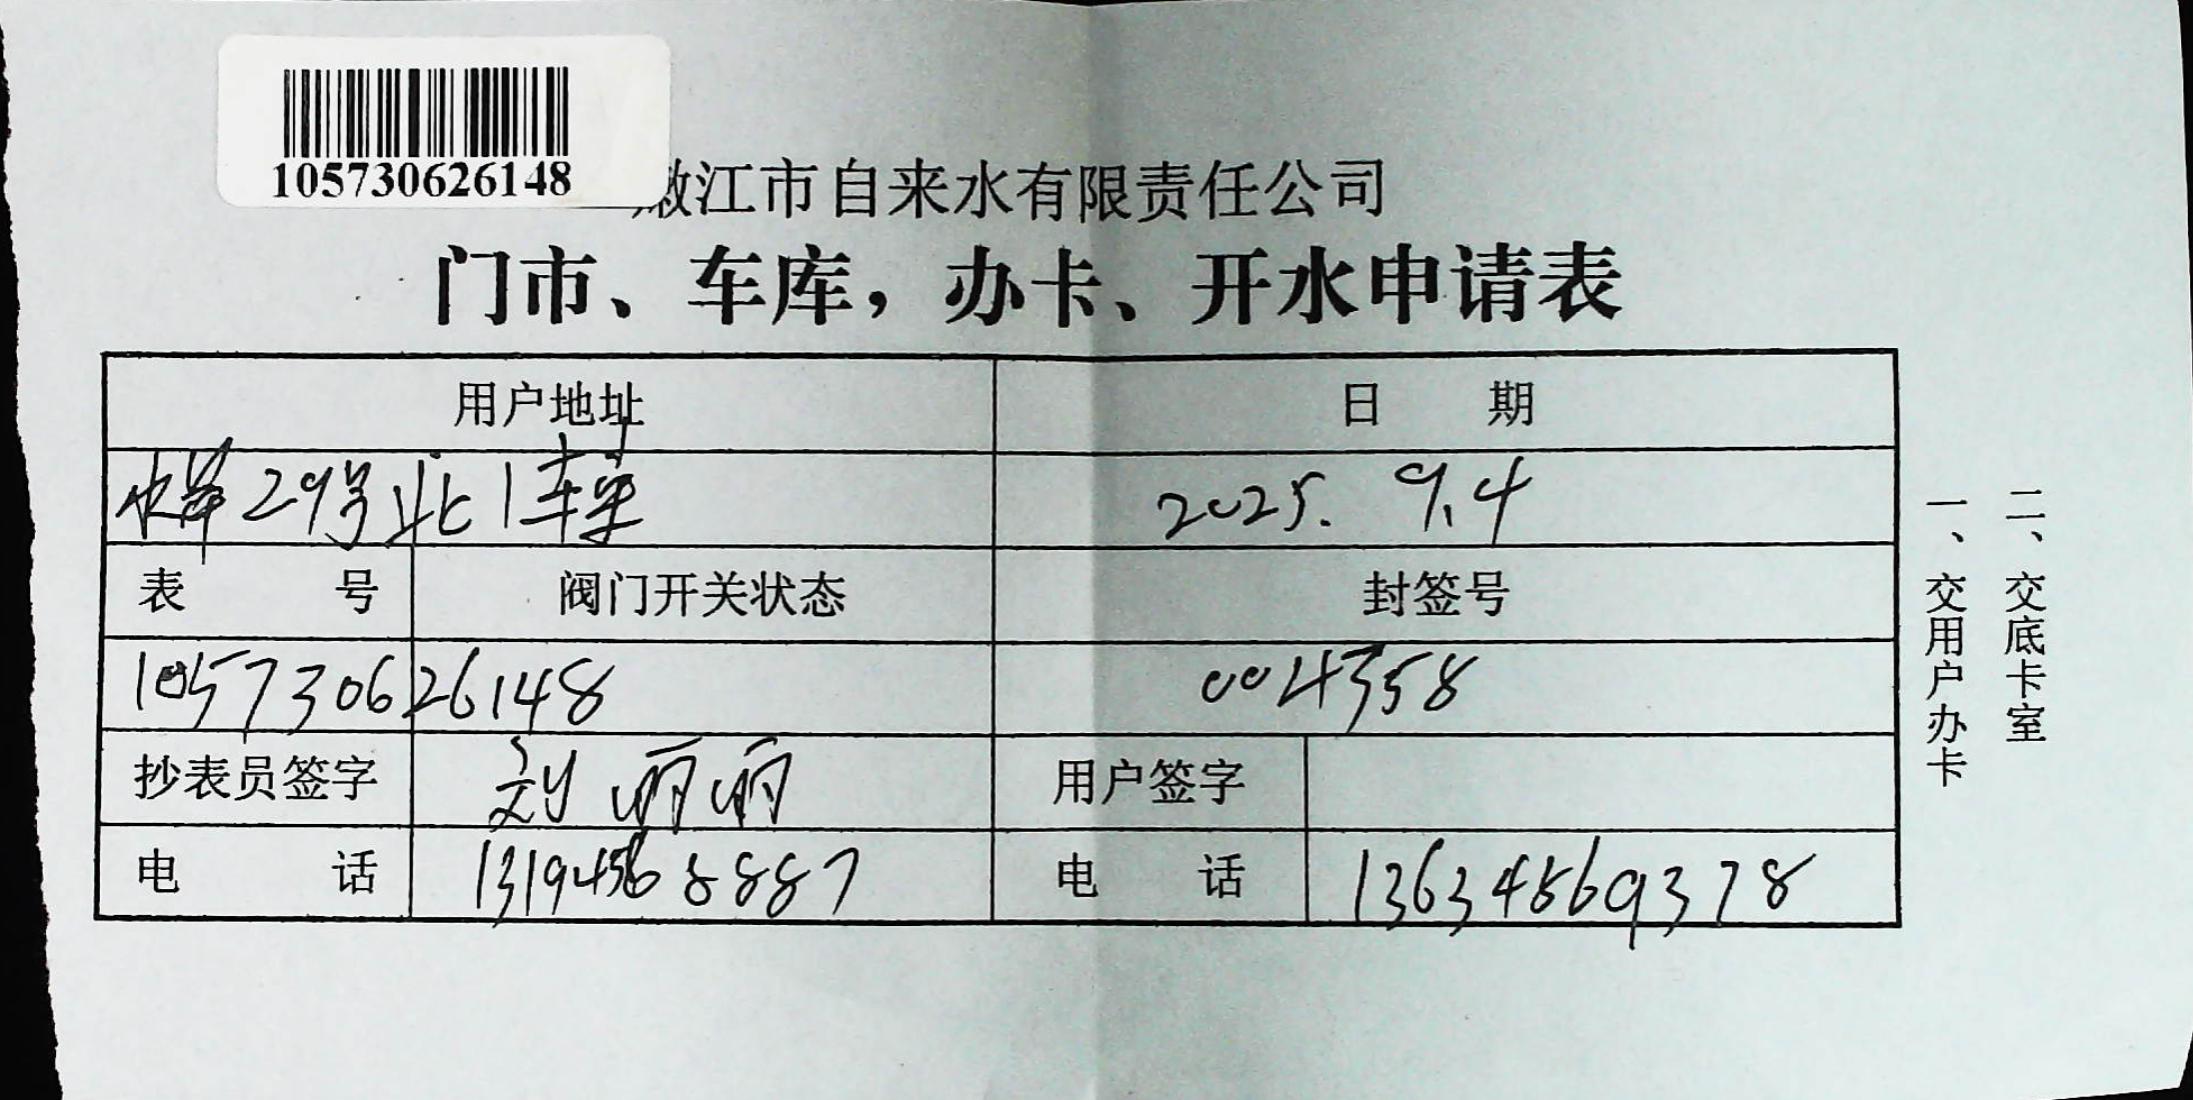 105730626148
嫩江市自来水有限责任公司
门市、车库，办卡、开水申请表
用户地址 日 期
水岸29号北1车库 2025. 9.4
表 号 阀门开关状态 封签号
105730626148 004358
抄表员签字 刘丽丽 用户签字
电 话 电 话
一、交用户办卡
二、交底卡室